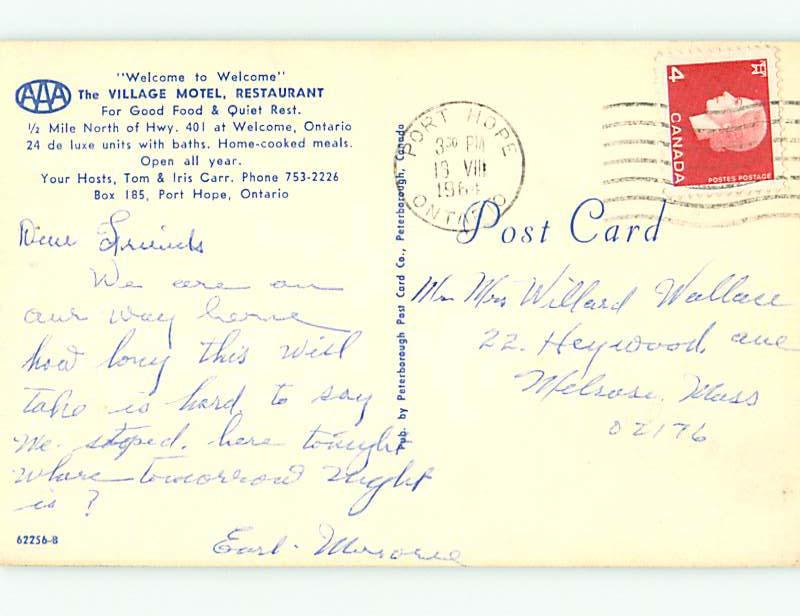 "Welcome to Welcome"
AAA The VILLAGE MOTEL, RESTAURANT
For Good Food & Quiet Rest.
½ Mile North of Hwy. 401 at Welcome, Ontario
24 de luxe units with baths. Home-cooked meals.
Open all year.
Your Hosts, Tom & Iris Carr. Phone 753-2226
Box 185, Port Hope, Ontario
Dear Friends
We are on
our way home
how long this will
take is hard to say
We stoped. here tonight
where tomorrow night
is?
Earl.
62256-B
Pub. by Peterborough Post Card Co., Peterborough, Canada
PORT HOPE
3 30 PM
VIII
ONTARIO
4
CANADA
POSTES POSTAGE
Post Card
Mr Mrs Willard Wallace
22. Heywood, ave
Melrose, Mass
02176